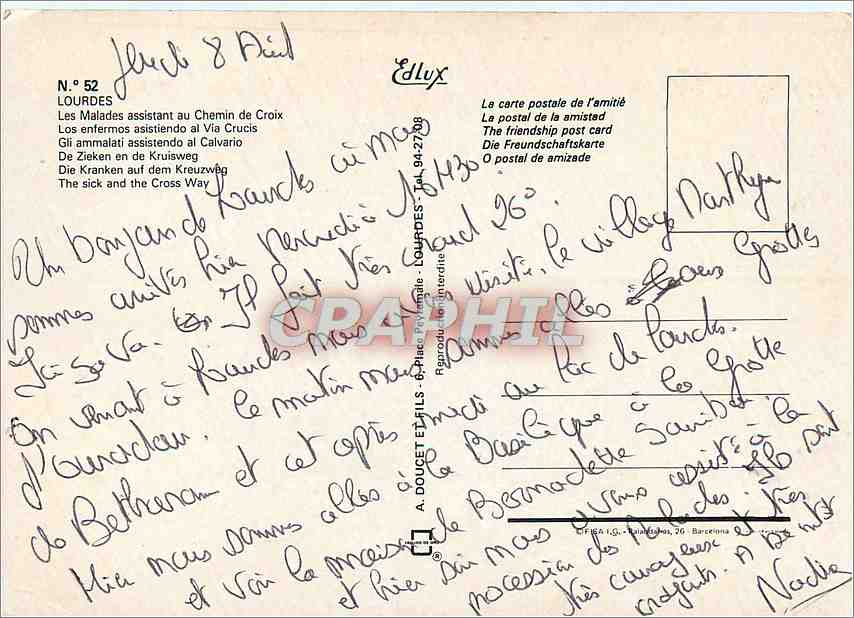 Jeudi 8 Août
N.º 52
LOURDES
Les Malades assistant au Chemin de Croix
Los enfermos asistiendo al Via Crucis
Gli ammalati assistendo al Calvario
De Zieken en de Kruisweg
Die Kranken auf dem Kreuzweg
The sick and the Cross Way
EdLux
La carte postale de l'amitié
La postal de la amistad
The friendship post card
Die Freundschaftskarte
O postal de amizade
A. DOUCET ET FILS - 6, Place Peyramale - LOURDES - Tel. 94-27-08
Reproduction interdite
CPAPHIL
Un bonjour de Lourdes où nous
sommes arrivés hier Mercredi à 16H30.
Ici ça va. Il fait très chaud 26°.
En venant à Lourdes nous avons visité le village
d'. Ce matin nous sommes allés aux Grottes
de Betharam et cet après midi au lac de Lourdes.
Hier nous sommes allés à la Basilique à la Grotte
et voir la maison de Bernadette Soubirou.
et hier soir nous avons assisté à la
procession des Malades. Ils sont
très courageux et très
. A Bientôt
Nadia
© FISA I.G. - Palaudarias, 26 - Barcelona